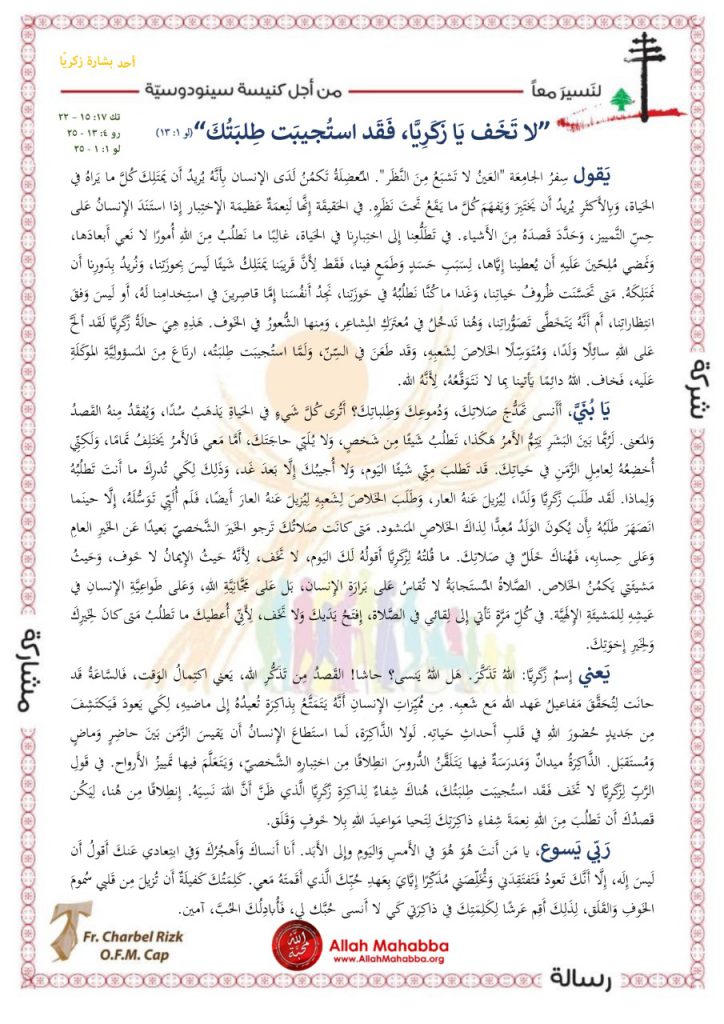 أحد بشارة زكريّا
لنَسيرَ معاً
من أجل كنيسة سينودوسيّة
تك ١٧: ١٥ - ٢٢
رو ٤: ١٣ - ٢٥
لو ١: ١ - ٢٥
”لا تَخَف يَا زَكَرِيَّا، فَقَد استُجيبَت طِلبَتُكَ“ (لو ١: ١٣)
يَقول سِفرُ الجامِعَة "العَينُ لا تَشبَعُ مِنَ النَّظَر". المُعضِلَةُ تَكمُنُ لَدَى الإنسان بِأَنَّهُ يُريدُ أن يَمتَلِكَ كُلَّ ما يَراهُ في
الحَياة، وَبِالأكثَرِ يُريدُ أن يَختَبِرَ وَيَفهَمَ كُلَّ ما يَقَعُ تَحتَ نَظَرِهِ. في الحَقيقَة إنَّها لَنِعمَةٌ عَظيمَة الإختِبار إذا استَنَدَ الإنسانُ على
حِسِّ التَّمييز، وَحَدَّدَ قَصدَهُ مِنَ الأشياء. في تَطَلُّعِنا إلى اختِبارِنا في الحَياة، غالِبًا ما نَطلُبُ مِنَ اللهِ أُمورًا لا نَعي أبعادَها،
وَنَمضي مُلِحّينَ عَلَيهِ أن يُعطينا إيَّاها، لِسَبَبِ حَسَدٍ وَطَمَعٍ فينا، فَقَط لِأَنَّ قَريبَنا يَمتَلِكُ شَيئًا لَيسَ بِحوزَتِنا، وَنُريدُ بِدَورِنا أن
نَمتَلِكَهُ. مَتى تَحَسَّنَت ظُروفُ حَياتِنا، وَغَدا ما كُنَّا نَطلُبُهُ في حَوزَتِنا، نَجِدُ أنفُسَنا إمَّا قاصِرينَ في استِخدامِنا لَهُ، أو لَيسَ وَفقَ
انتِظاراتِنا، أم أنَّهُ يَتَخَطَّى تَصَوُّراتِنا، وَهُنا نَدخُلُ في مُعتَرَكِ المَشاعِر، وَمِنها الشُّعورُ في الخَوف. هَذِهِ هِيَ حالَةُ زَكَرِيَّا لَقَد أَلَحَّ
على اللهِ سائِلًا وَلَدًا، وَمُتَوَسِّلًا الخَلاصَ لِشَعبِهِ، وَقَد طَعَنَ في السِّنّ، وَلَمَّا استُجيبَت طِلبَتُه، ارتاعَ مِنَ المَسؤوليَّةِ المُوكَلَةِ
عَلَيه، فَخاف. اللهُ دائِمًا يَأتينا بِما لا نَتَوَقَّعُهُ، لِأَنَّهُ الله.
يَا بُنَيَّ، أَأَنسى تَهَدُّجَ صَلاتِكَ، وَدُموعِكَ وَطِلباتِكَ؟ أَتُرى كُلَّ شَيءٍ في الحَياةِ يَذهَبُ سُدًا، وَيُفقَدُ مِنهُ القَصدُ
وَالمَعنى. لَرُبَّما بَينَ البَشَرِ يَتِمُّ الأمرُ هَكَذا، تَطلُبُ شَيئًا مِن شَخصٍ، وَلا يُلَبّي حاجَتَكَ، أمَّا مَعي فَالأمرُ يَختَلِفُ تَمامًا، وَلَكِنّي
أُخضِعُهُ لِعامِلِ الزَّمَنِ في حَياتِكَ. قَد تَطلب مِنّي شَيئًا اليَوم، وَلا أُجيبُكَ إلَّا بَعدَ غَد، وَذَلِكَ لِكَي تُدرِكَ ما أنتَ تَطلُبُهُ
وَلِماذا. لَقَد طَلَبَ زَكَرِيَّا وَلَدًا، لِيُزيلَ عَنهُ العار، وَطَلَبَ الخَلاصَ لِشَعبِهِ لِيُزيلَ عَنهُ العارَ أيضًا، فَلَم أُلَبّي تَوَسُّلَهُ، إلَّا حينَما
انصَهَرَ طَلَبُهُ بِأن يُكونَ الوَلَدُ مُعدًّا لِذاكَ الخَلاصِ المَنشود. مَتى كانَت صَلاتُكَ تَرجو الخَيرَ الشَّخصيّ بَعيدًا عَنِ الخَيرِ العامِ
وَعَلى حِسابِهِ، فَهُناكَ خَلَلٌ في صَلاتِكَ. ما قُلتُهُ لِزَكَرِيَّا أقولُهُ لَكَ اليَوم، لا تَخَف، لِأَنَّهُ حَيثُ الإيمانُ لا خَوف، وَحَيثُ
مَشيئَتي يَكمُنُ الخَلاص. الصَّلاةُ المُستَجابَةُ لا تُقاسُ عَلى بَرارَةِ الإنسان، بَل عَلى مَجَّانيَّةِ اللهِ، وَعَلى طَواعِيَّةِ الإنسانِ في
عَيشِهِ لِلمَشيئَةِ الإلَهيَّة. في كُلِّ مَرَّةٍ تَأتي إلى لِقائي في الصَّلاة، إفتَحْ يَدَيكَ وَلا تَخَف، لِأَنّي أُعطيكَ ما تَطلُبُ مَتى كانَ لِخَيرِكَ
وَلِخَيرِ إخوَتِكَ.
يَعني إسمُ زَكَرِيَّا: اللهُ تَذَكَّرَ. هَل اللهُ يَنسى؟ حاشا! القَصدُ مِن تَذَكُّرِ الله، يَعني اكتِمالُ الوَقت، فَالسَّاعَةُ قَد
حانَت لِتُحَقَّقَ مَفاعيلُ عَهدِ الله مَعَ شَعبِه. مِن مُمَيِّزاتِ الإنسانِ أنَّهُ يَتَمَتَّعُ بِذاكِرَةٍ تُعيدُهُ إلى ماضيهِ، لِكَي يَعودَ فَيَكتَشِفَ
مِن جَديدٍ حُضورَ اللهِ في قَلبِ أحداثِ حَياتِهِ. لَولا الذَّاكِرَة، لَما استَطاعَ الإنسانُ أن يَقيسَ الزَّمَنَ بَينَ حاضِرٍ وَماضٍ
وَمُستَقبَل. الذَّاكِرَةُ ميدانٌ وَمَدرَسَةٌ فيها يَتَلَقَّنُ الدُّروسَ انطِلاقًا مِن اختِبارِهِ الشَّخصيّ، وَيَتَعَلَّمَ فيها تَمييزَ الأرواح. في قَولِ
الرَّبِّ لِزَكَرِيَّا لا تَخَف فَقَد استُجيبَت طِلبَتُكَ، هُناكَ شِفاءٌ لِذاكِرَةِ زَكَرِيَّا الَّذي ظَنَّ أنَّ اللهَ نَسِيَهُ. إنطِلاقًا مِن هُنا، لِيَكُن
قَصدُكَ أن تَطلُبَ مِنَ اللهِ نِعمَةَ شِفاءِ ذاكِرَتِكَ لِتَحيا مَواعيدَ اللهِ بِلا خَوفٍ وَقَلَق.
رَبّي يَسوع، يا مَن أنتَ هُوَ هُوَ في الأمسِ وَاليَومِ وإلى الأبَد. أنا أنساكَ وَأهجُرُكَ وَفي ابتِعادي عَنكَ أقولُ أن
لَيسَ إلَه، إلَّا أنَّكَ تَعودُ فَتَفتَقِدَني وَتُخَلِّصَني مُذَكِّرًا إيَّايَ بِعَهدِ حُبِّكَ الَّذي أقَمتَهُ مَعي. كَلِمَتُكَ كَفيلَةٌ أن تُزيلَ مِن قَلبي سُمومَ
الخَوفِ وَالقَلَق، لِذَلِكَ أقِم عَرشًا لِكَلِمَتِكَ في ذاكِرَتي كَي لا أنسى حُبَّكَ لي، فَأُبادِلُكَ الحُبَّ، آمين.
شركة
مشاركة
رسالة
Fr. Charbel Rizk
O.F.M. Cap
الله محبّة
Allah Mahabba
www.AllahMahabba.org